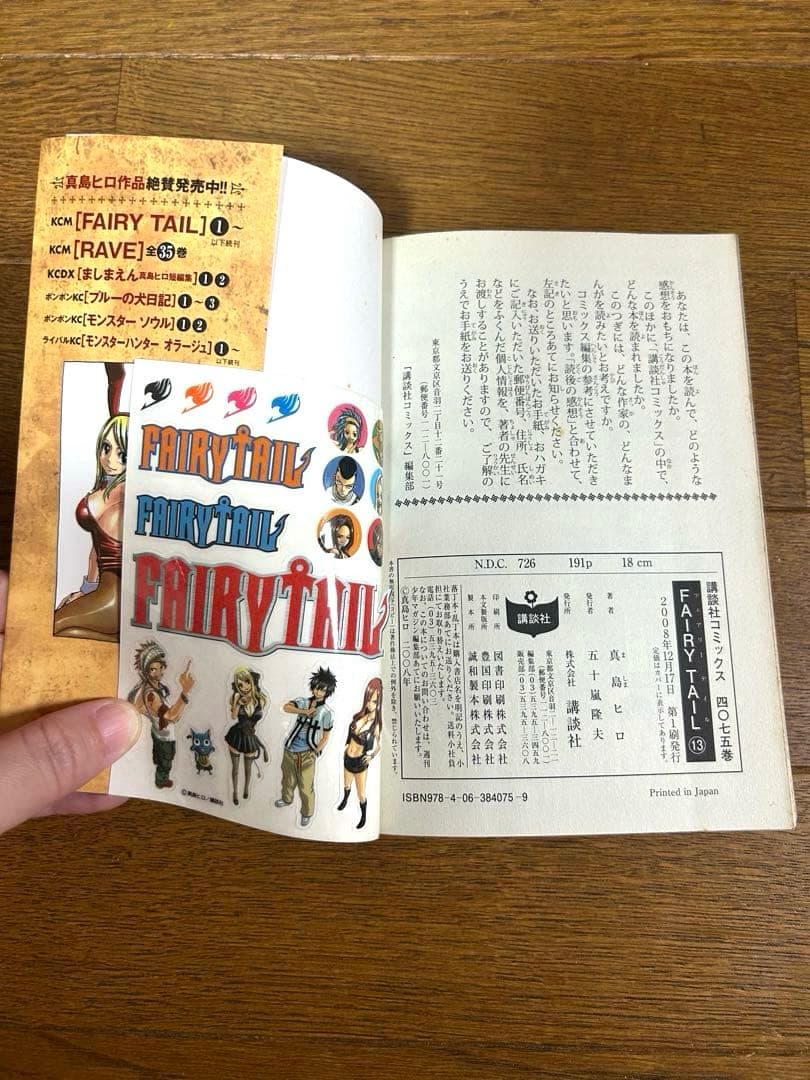 真島ヒロ作品絶賛発売中!!
KCM[FAIRY TAIL]1~
以下続刊
KCM[RAVE]全35巻
KCDX[ましまえん真島ヒロ短編集]1 2
ボンボンKC[ブルーの犬日記]1~3
ボンボンKC[モンスター ソウル]1 2
ライバルKC[モンスターハンター オラージュ]1~
以下続刊
FAIRY TAIL
FAIRY TAIL
FAIRY TAIL
©真島ヒロ/講談社
あなたは、この本を読んで、どのような
感想をおもちになりましたか。
このほかに、「講談社コミックス」の中で、
どんな本を読まれましたか。
このつぎには、どんな作家の、どんなま
んがを読みたいとお考えですか。
コミックス編集の参考にさせていただき
たいと思います。「読後の感想」と合わせて、
左記のところあてにお知らせください。
なお、お送りいただいたお手紙、おハガキ
にご記入いただいた郵便番号、住所、氏名
などをふくんだ個人情報を、著者の先生に
お渡しすることがありますので、ご了解の
うえでお手紙をお送りください。
東京都文京区音羽二丁目十二番二十一号
(郵便番号 一一二-八〇〇一)
「講談社コミックス」編集部
N.D.C. 726 191p 18 cm
講談社コミックス 四〇七五巻
フェアリーテイル
FAIRY TAIL 13
2008年12月17日 第1刷発行
定価はカバーに表示してあります。
著者 真島ヒロ
ましま
発行者 五十嵐隆夫
発行所 株式会社 講談社
東京都文京区音羽二-一二-二一
(郵便番号 一一二-八〇〇一)
編集部(〇三)五三九五-三四五九
販売部(〇三)五三九五-三六〇八
講談社
印刷所 図書印刷株式会社
本文製版所 豊国印刷株式会社
製本所 誠和製本株式会社
落丁本・乱丁本は購入書店名を明記のうえ、小
社業務部あてにお送りください。送料小社負
担にてお取り替えいたします。
電話(〇三)五三九五-三六〇三
なお、この本についてのお問い合わせは、週刊
少年マガジン編集部あてにお願いいたします。
©真島ヒロ 二〇〇八年
は著作権法上での例外を除き、禁じられています。
ISBN978-4-06-384075-9
Printed in Japan